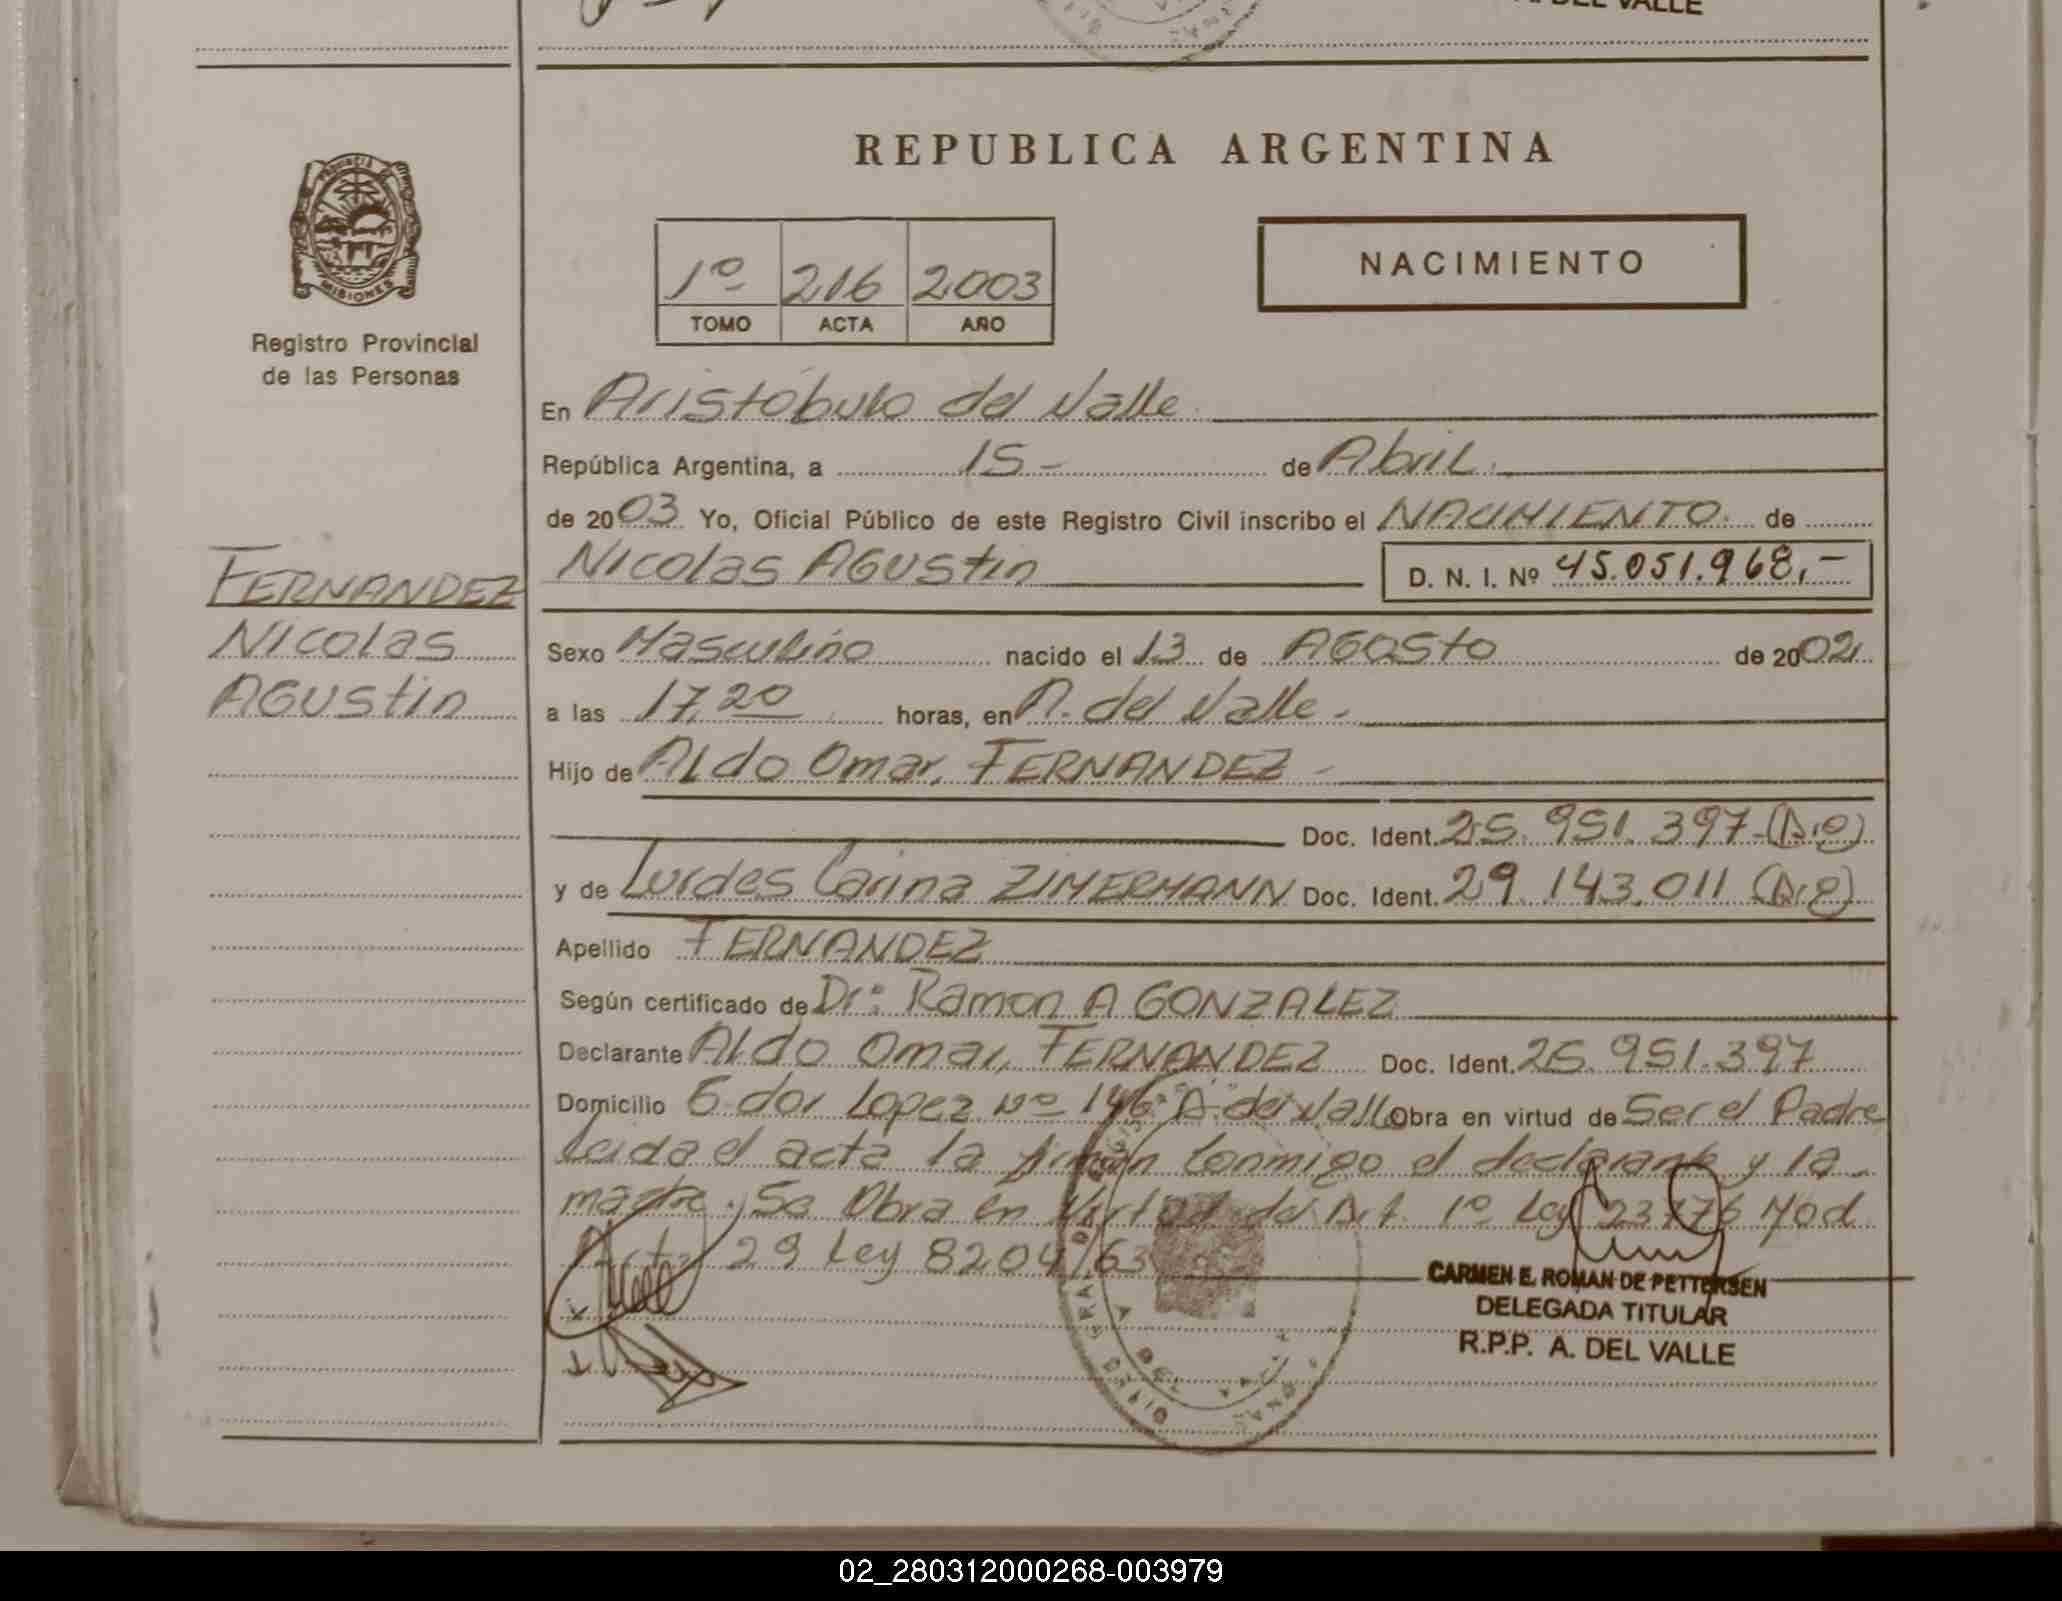 DEL VALLE
REPUBLICA ARGENTINA
PROVINCIA DE
MISIONES
Registro Provincial
de las Personas
1º 216 2003
TOMO ACTA AÑO
NACIMIENTO
En Aristóbulo del Valle
República Argentina, a 15 - de Abril
de 2003 Yo, Oficial Público de este Registro Civil inscribo el NACIMIENTO de
Nicolas Agustin D. N. I. Nº 45.051.968,-
FERNANDEZ
Nicolas
Agustin
Sexo Masculino nacido el 13 de Agosto de 2002
a las 17,20 horas, en A. del Valle -
Hijo de Aldo Omar, FERNANDEZ -
Doc. Ident. 25.951.397 (Arg)
y de Lurdes Carina ZIMERMANN Doc. Ident. 29.143.011 (Arg)
Apellido FERNANDEZ
Según certificado de Dr: Ramon A GONZALEZ
Declarante Aldo Omar, FERNANDEZ Doc. Ident. 25.951.397
Domicilio G.dor Lopez Nº 146 A. del Valle Obra en virtud de Ser el Padre
Leida el acta la firman Conmigo el declarante y la
madre. Se Obra en Virtud del Art. 1º Ley 23776 Mod
Art. 29 Ley 8204/63
CARMEN E. ROMAN DE PETTERSEN
DELEGADA TITULAR
R.P.P. A. DEL VALLE
A DEL VALLE
02_280312000268-003979